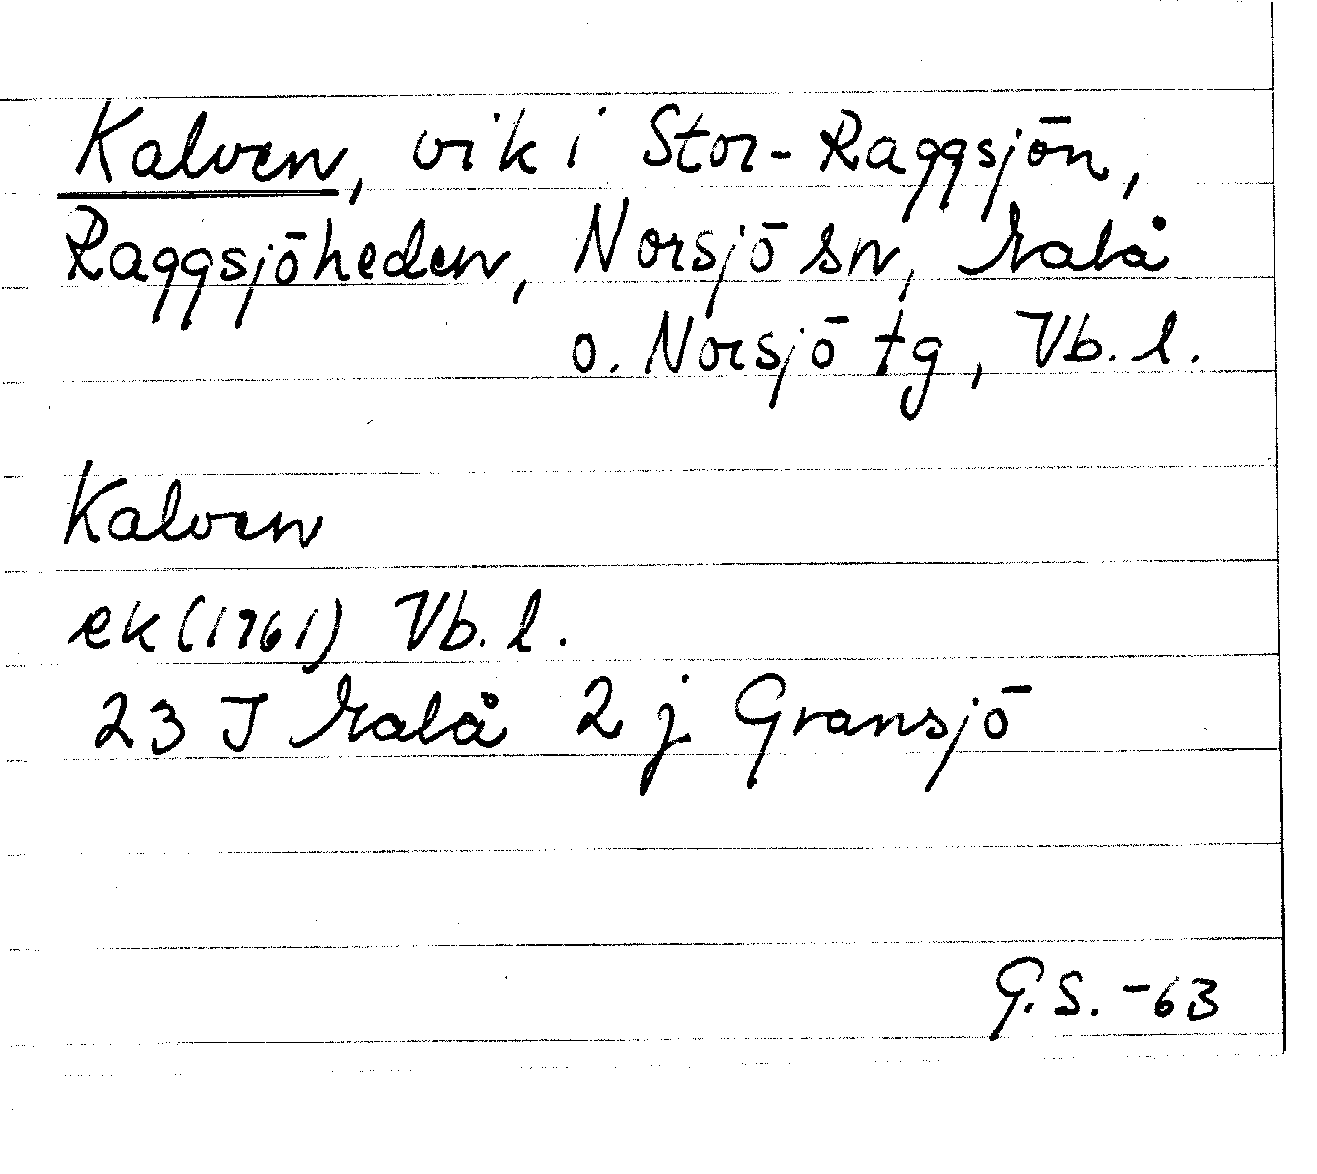 Kalven, vik i Stor-Raggsjön,
Raggsjöheden, Norsjö sn, Malå
o. Norsjö tg, Vb. l.
Kalven
ek (1961) Vb. l.
23 J Malå 2 j Gransjö
G.S. -63